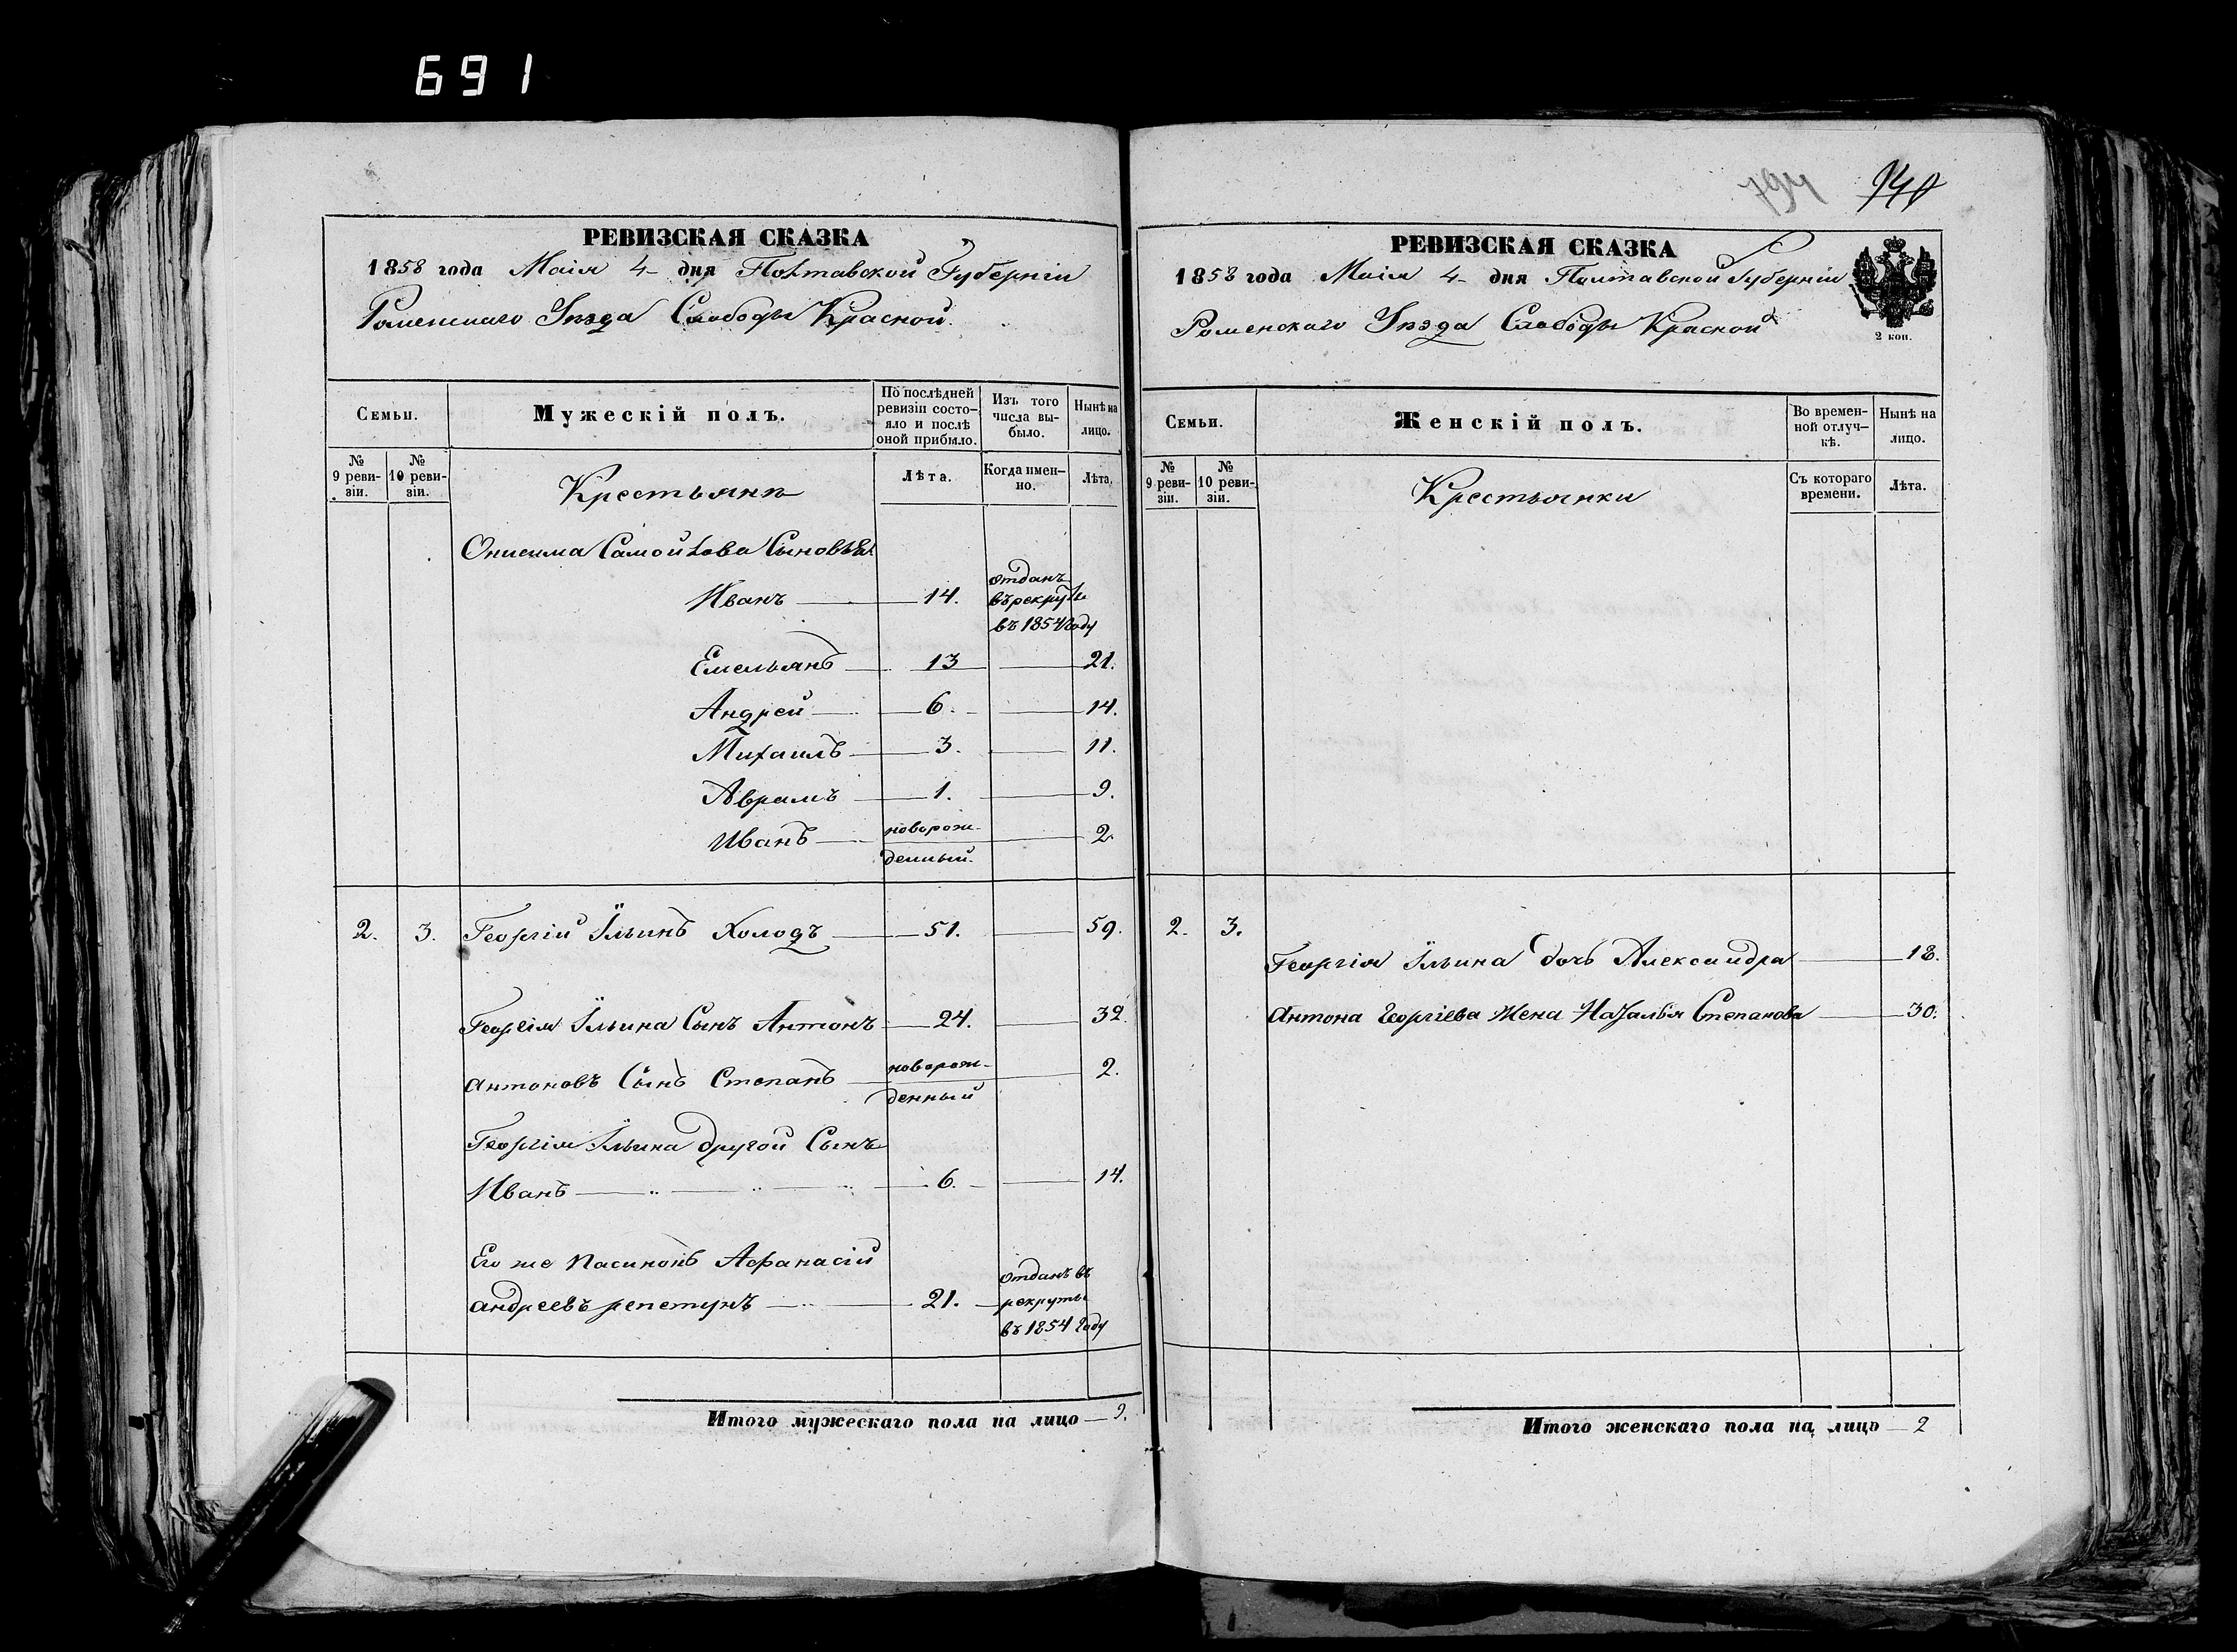 691
РЕВИЗСКАЯ СКАЗКА
1858 года Маія 4 дня Полтавской Губерніи
Роменскаго Уѣзда Слободы Красной.
Семьи.
Мужескій полъ.
По послѣдней ревизіи состо-
яло и послѣ оной прибыло.
Изъ того числа вы-
было.
Нынѣ на лицо.
№ 9 реви-
зіи.
№ 10 реви-
зіи.
Крестьянѣ
Лѣта.
Когда имен-
но.
Лѣта.
Онисима Самойлова Сыновья
Иванъ 14. отданъ
въ рекруты
въ 1854 году
Емельянъ 13 21.
Андрей 6. 14.
Михаилъ 3. 11.
Аврамъ 1. 9.
Иванъ новорож-
денный. 2.
2. 3. Георгій Ильинъ Холодъ 51. 59.
Георгія Ильина Сынъ Антонъ 24. 32.
Антоновъ Сынъ Степанъ новорож-
денный 2.
Георгія Ильина другой Сынъ
Иванъ 6. 14.
Его же Пасинокъ Афанасій
Андреевъ репетунъ 21. отданъ въ
рекруты
въ 1854 Году
Итого мужескаго пола на лицо 9.
794 740
РЕВИЗСКАЯ СКАЗКА
1858 года Маія 4 дня Полтавской Губерніи
Роменскаго Уѣзда Слободы Красной
2 коп.
Семьи.
Женскій полъ.
Во времен-
ной отлуч-
кѣ.
Нынѣ на лицо.
№ 9 реви-
зіи.
№ 10 реви-
зіи.
Крестьянки
Съ котораго времени.
Лѣта.
2. 3.
Георгія Ильина дочь Александра 18.
Антона Георгіева Жена Наталья Степанова 30.
Итого женскаго пола на лицо 2